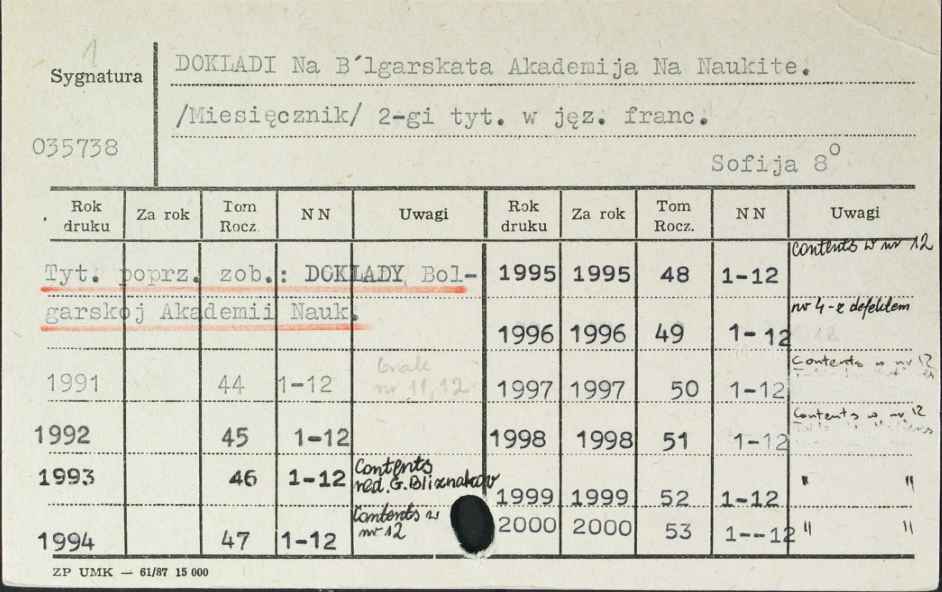 1
Sygnatura
035738
DOKLADI Na B´lgarskata Akademija Na Naukite.
/Miesięcznik/ 2-gi tyt. w jęz. franc.
Sofija 8°
Rok druku Za rok Tom Rocz. NN Uwagi Rok druku Za rok Tom Rocz. NN Uwagi
Tyt. poprz. zob.: DOKLADY Bol-
garskoj Akademii Nauk.
1991 44 1-12 brak nr 11, 12
1992 45 1-12
1993 46 1-12 Contents red. G. Bliznakov
1994 47 1-12 Contents w nr 12
1995 1995 48 1-12 Contents w nr 12
1996 1996 49 1-12 nr 4-z defektem
1997 1997 50 1-12 Contents w nr 12
1998 1998 51 1-12 Contents w nr 12
1999 1999 52 1-12 " "
2000 2000 53 1--12 " "
ZP UMK — 61/87 15 000